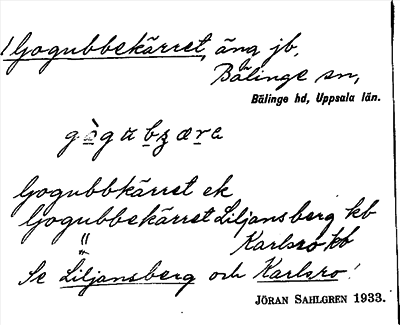 ! Gogubbekärret, äng jb,
Bälinge sn,
Bälinge hd, Uppsala län.
Gogubbkärret ek
Gogubbekärret Liljansberg kb
" Karlsro kb
Se Liljansberg och Karlsro!
JÖRAN SAHLGREN 1933.